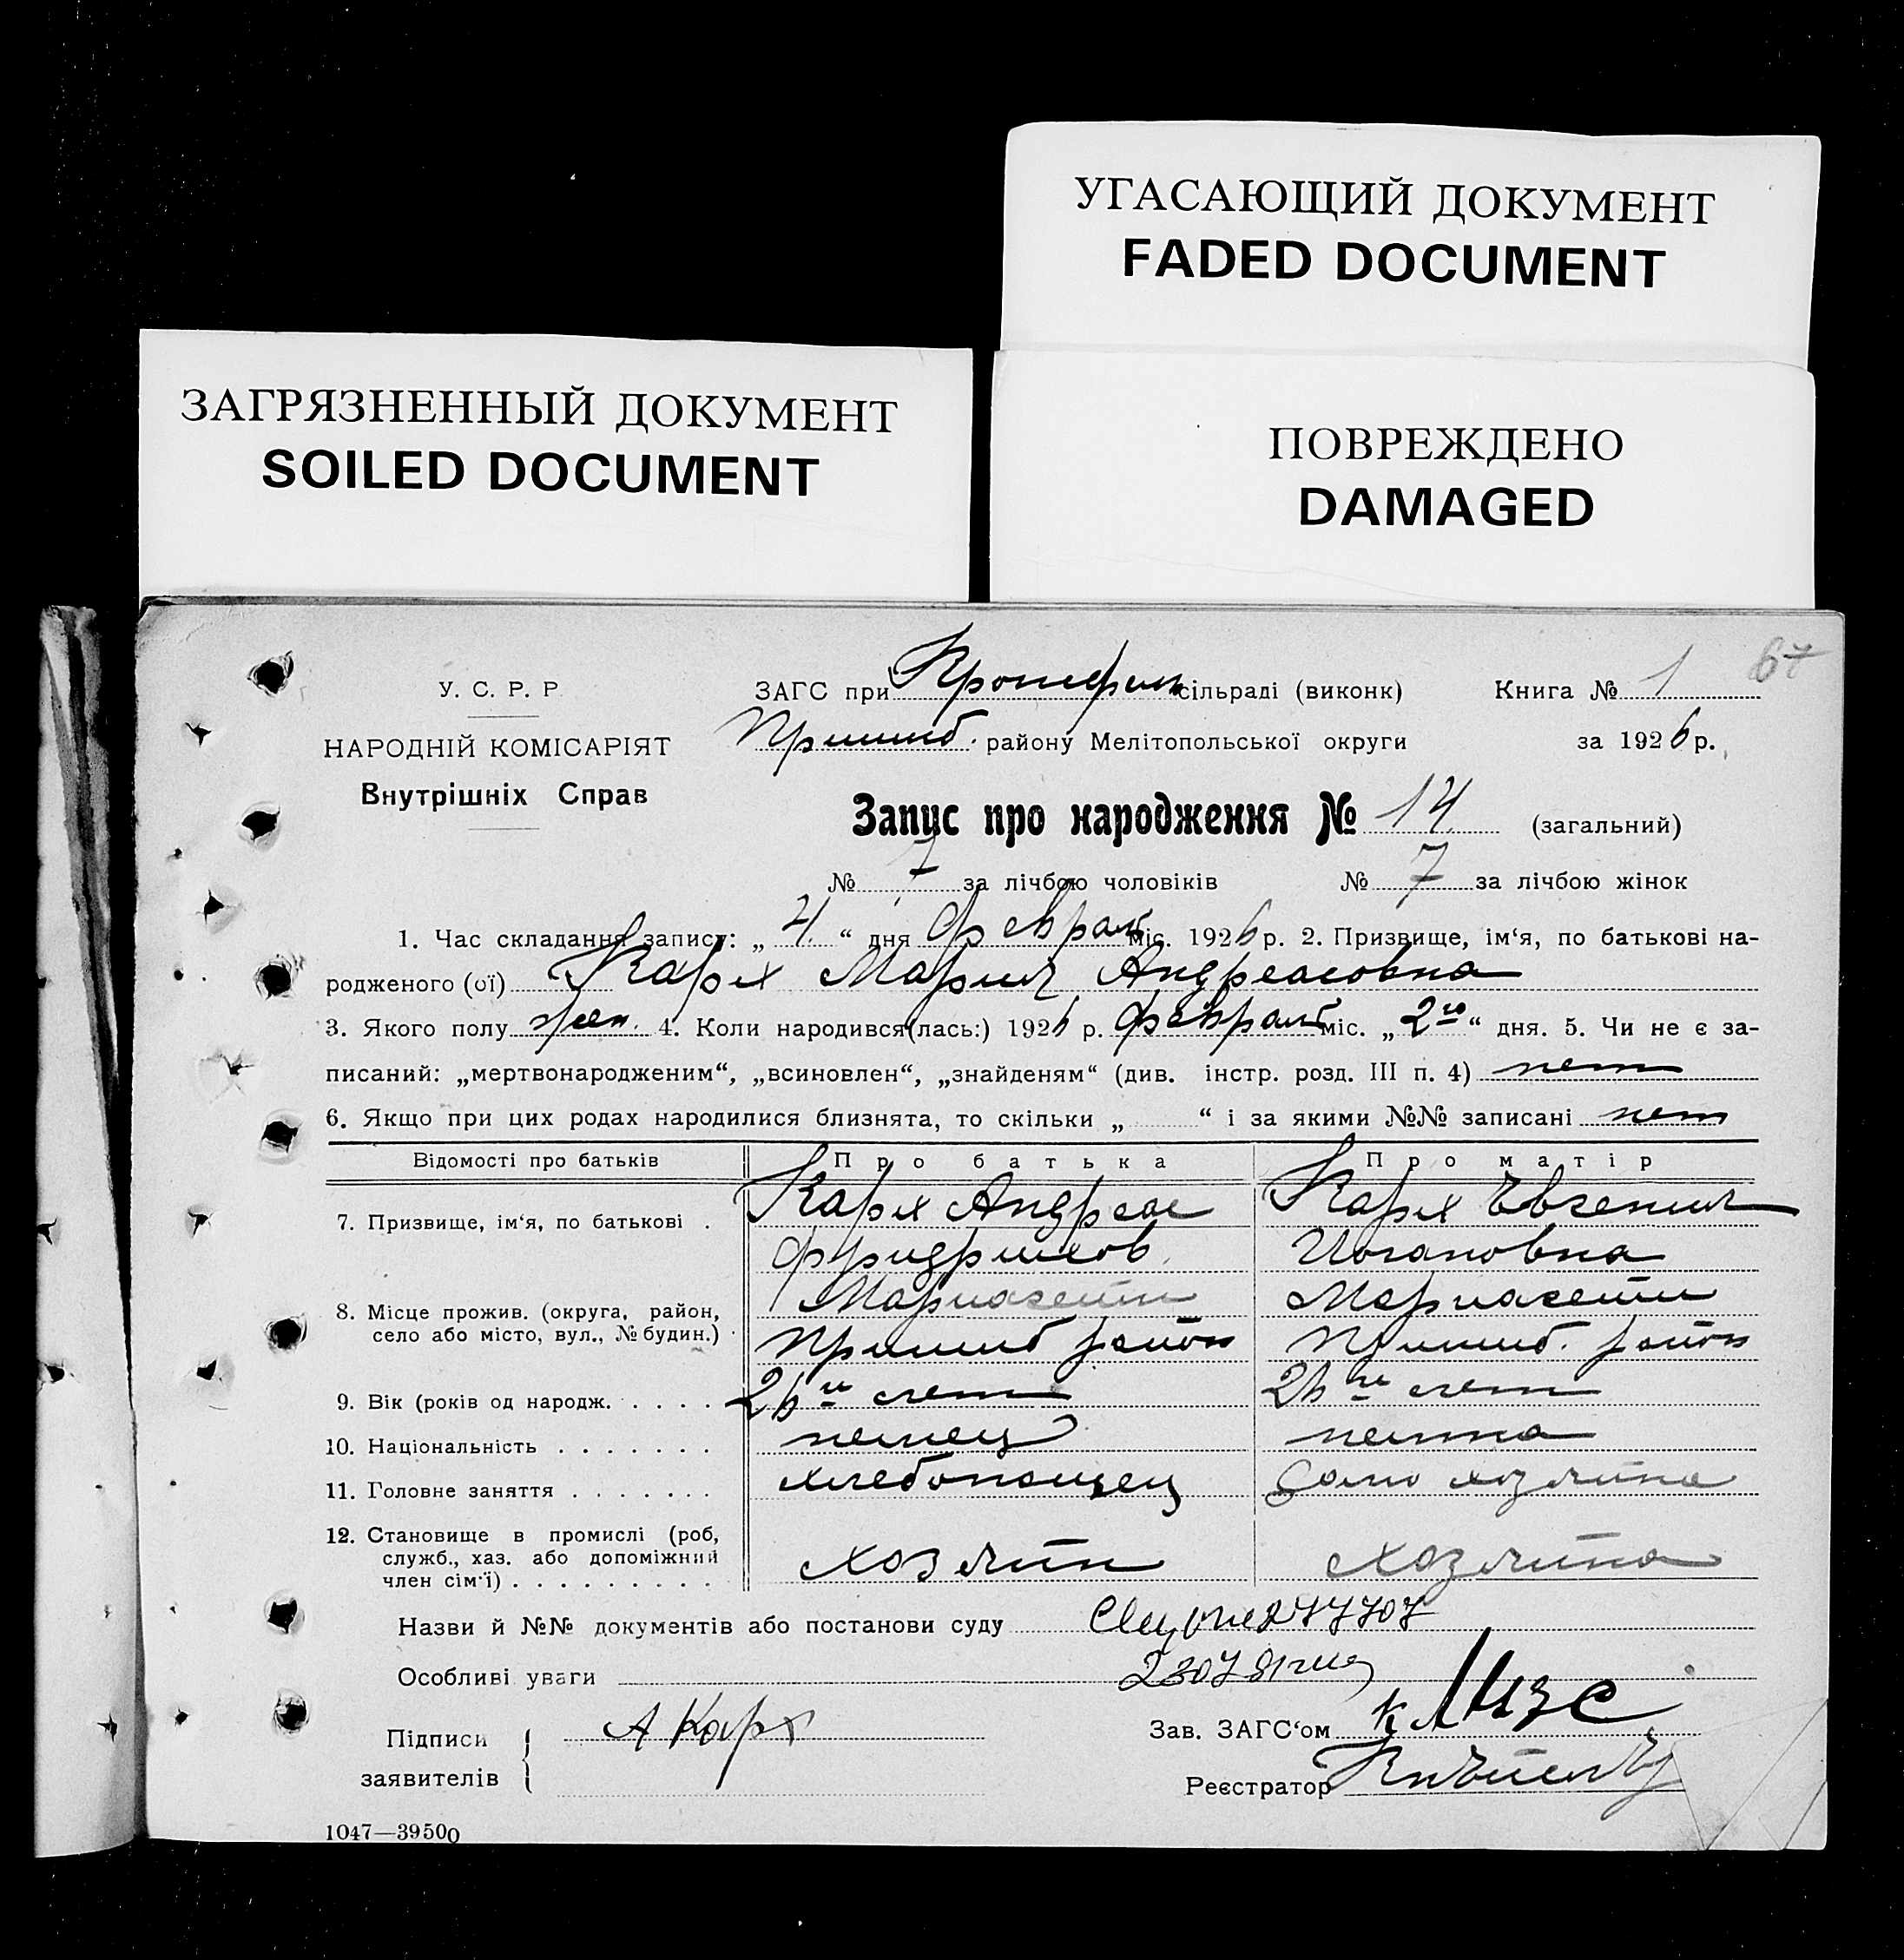 УГАСАЮЩИЙ ДОКУМЕНТ
FADED DOCUMENT
ЗАГРЯЗНЕННЫЙ ДОКУМЕНТ
SOILED DOCUMENT
ПОВРЕЖДЕНО
DAMAGED
67
У. С. Р. Р
НАРОДНІЙ КОМІСАРІЯТ
Внутрішніх Справ
ЗАГС при сільраді (виконк) Книга № 1
Пришиб. району Мелітопольської округи за 1926 р.
Запис про народження № 14 (загальний)
№ 7 за лічбою чоловіків № 7 за лічбою жінок
1. Час складання запису: „ 4 “ дня февраля міс. 1926 р. 2. Призвище, ім‘я, по батькові на-
родженого (ої) Карх Мария Андреасовна
3. Якого полу жен. 4. Коли народився(лась:) 1926 р. февраля міс. „ 2го “ дня. 5. Чи не є за-
писаний: „мертвонародженим“, „всиновлен“, „знайденям“ (див. інстр. розд. III п. 4) нет
6. Якщо при цих родах народилися близнята, то скільки „ “ і за якими №№ записані нет
Відомості про батьків Про батька Про матір
7. Призвище, ім‘я, по батькові . Карх Андреас Карх Евгения
Фридрихов. Иогановна
8. Місце прожив. (округа, район, Мариагейм Мариагейм
село або місто, вул., № будин.) Пришиб район Пришиб. район
9. Вік (років од народж. . . . . 26 и лет 26 ти лет
10. Національність . . . . . . . немец немка
11. Головне заняття . . . . . . . хлебопашец домохозяйка
12. Становище в промислі (роб,
служб., хаз. або допоміжний хозяин хозяйка
член сім‘ї) . . . . . . . . .
Назви й №№ документів або постанови суду
Особливі уваги
Підписи А Карх Зав. ЗАГС‘ом
заявителів Реєстратор
1047—39500